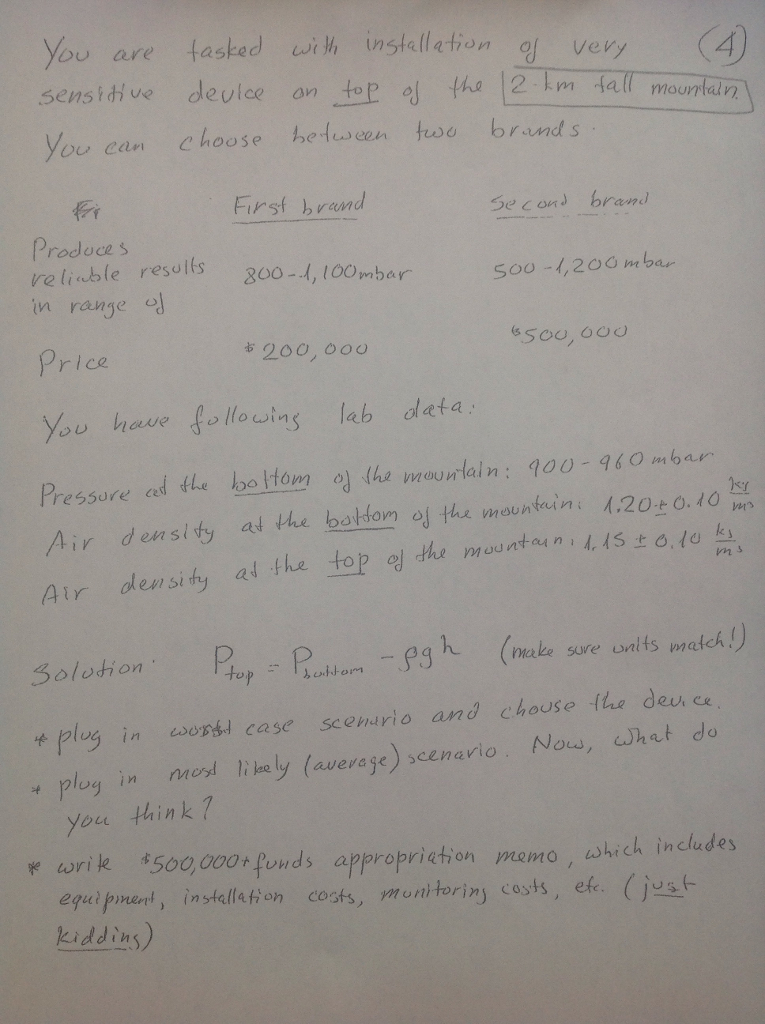 You are tasked with installation of very (4)
sensitive device on top of the 2-km tall mountain.
You can choose between two brands.
First brand Second brand
Produces
reliable results 800-1,100 mbar 500-1,200 mbar
in range of
Price $200,000 $500,000
You have following lab data:
Pressure at the bottom of the mountain: 900-960 mbar
Air density at the bottom of the mountain: 1.20±0.10 kg/m³
Air density at the top of the mountain: 1.15±0.10 kg/m³
Solution: Ptop = Pbottom - ρgh (make sure units match!)
* plug in worst case scenario and choose the device.
* plug in most likely (average) scenario. Now, what do
you think?
* write $500,000+ funds appropriation memo, which includes
equipment, installation costs, monitoring costs, etc. (just
kidding)